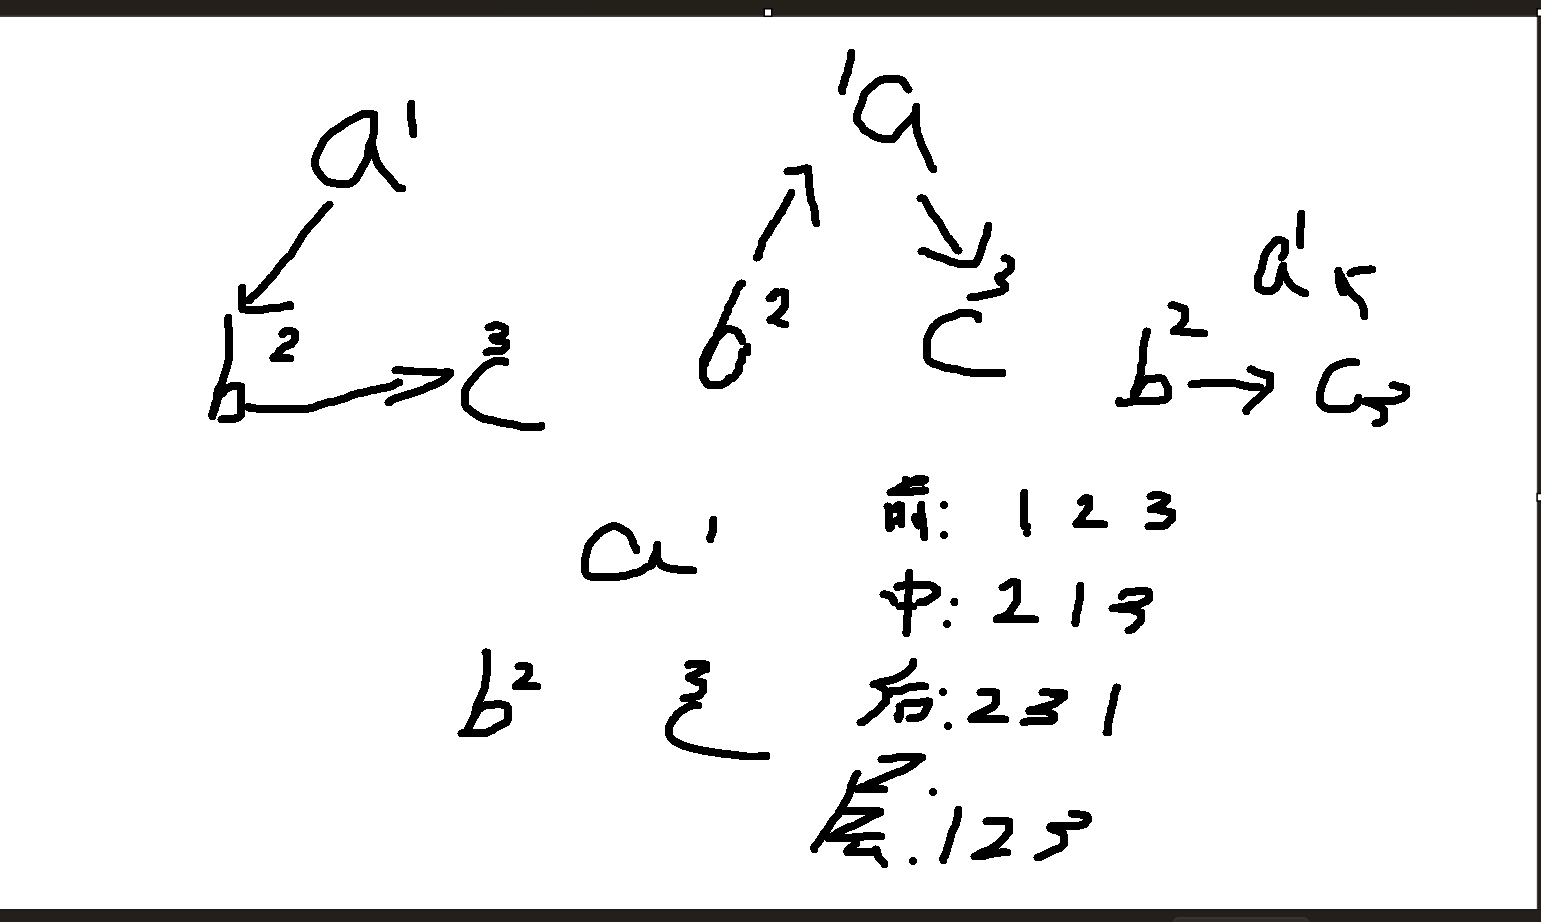 a 1
b 2 c 3
1 a
b 2 c 3
a 1
b 2 c 3
a 1
b 2 c 3
前: 1 2 3
中: 2 1 3
后: 2 3 1
层: 1 2 3